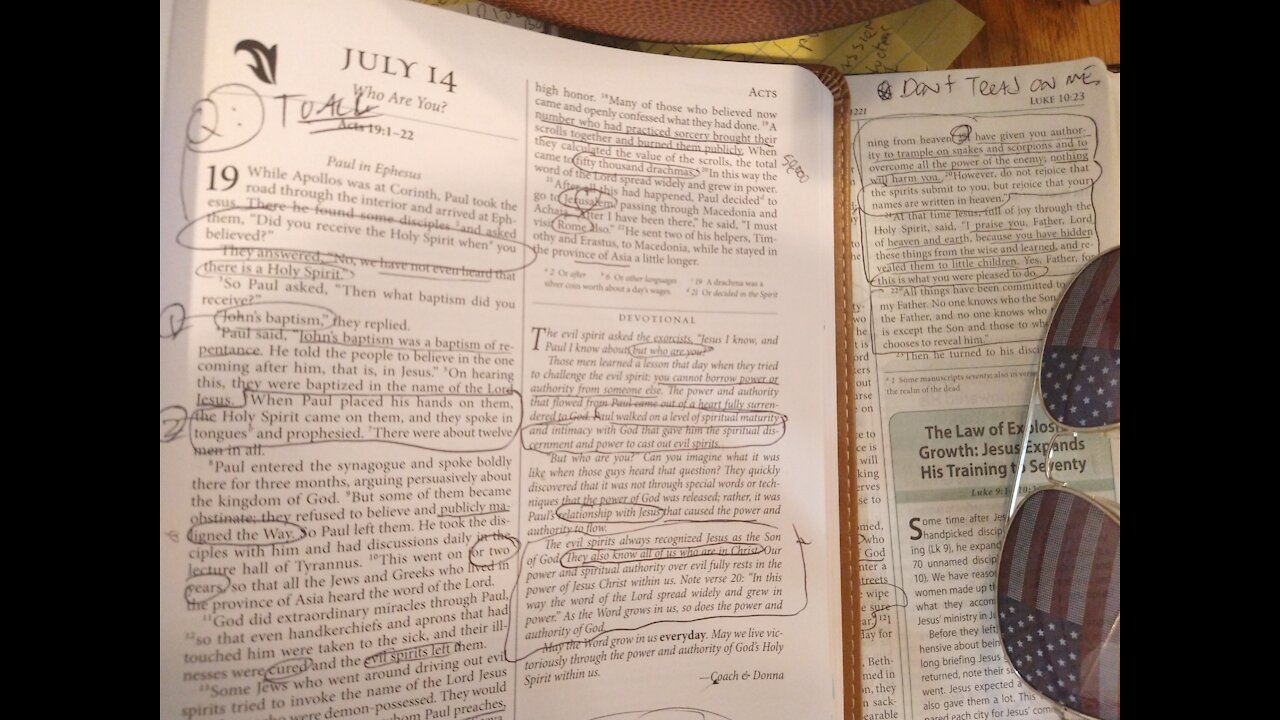 JULY 14
Who Are You?
Q:
TO ALL
Acts 19:1–22
Paul in Ephesus
19 While Apollos was at Corinth, Paul took the
road through the interior and arrived at Eph-
esus. There he found some disciples ²and asked
them, "Did you receive the Holy Spirit when you
believed?"
They answered, "No, we have not even heard that
there is a Holy Spirit."
³So Paul asked, "Then what baptism did you
receive?"
"John's baptism," they replied.
⁴Paul said, "John's baptism was a baptism of re-
pentance. He told the people to believe in the one
coming after him, that is, in Jesus." ⁵On hearing
this, they were baptized in the name of the Lord
Jesus. ⁶When Paul placed his hands on them,
the Holy Spirit came on them, and they spoke in
tongues and prophesied. ⁷There were about twelve
men in all.
⁸Paul entered the synagogue and spoke boldly
there for three months, arguing persuasively about
the kingdom of God. ⁹But some of them became
obstinate; they refused to believe and publicly ma-
ligned the Way. So Paul left them. He took the dis-
ciples with him and had discussions daily in the
lecture hall of Tyrannus. ¹⁰This went on for two
years, so that all the Jews and Greeks who lived in
the province of Asia heard the word of the Lord.
¹¹God did extraordinary miracles through Paul,
¹²so that even handkerchiefs and aprons that had
touched him were taken to the sick, and their ill-
nesses were cured and the evil spirits left them.
¹³Some Jews who went around driving out evil
spirits tried to invoke the name of the Lord Jesus
who were demon-possessed. They would
whom Paul preaches,
ACTS
high honor. ¹⁸Many of those who believed now
came and openly confessed what they had done. ¹⁹A
number who had practiced sorcery brought their
scrolls together and burned them publicly. When
they calculated the value of the scrolls, the total
came to fifty thousand drachmas. ²⁰In this way the
word of the Lord spread widely and grew in power.
50,000
²¹After all this had happened, Paul decided to
go to Jerusalem, passing through Macedonia and
Achaia. "After I have been there," he said, "I must
visit Rome also." ²²He sent two of his helpers, Tim-
othy and Erastus, to Macedonia, while he stayed in
the province of Asia a little longer.
ᵃ 2 Or after ᵇ 6 Or other languages ᶜ 19 A drachma was a
silver coin worth about a day's wages. ᵈ 21 Or decided in the Spirit
DEVOTIONAL
The evil spirit asked the exorcists, "Jesus I know, and
Paul I know about, but who are you?"
Those men learned a lesson that day when they tried
to challenge the evil spirit: you cannot borrow power or
authority from someone else. The power and authority
that flowed from Paul came out of a heart fully surren-
dered to God. Paul walked on a level of spiritual maturity
and intimacy with God that gave him the spiritual dis-
cernment and power to cast out evil spirits.
"But who are you?" Can you imagine what it was
like when those guys heard that question? They quickly
discovered that it was not through special words or tech-
niques that the power of God was released; rather, it was
Paul's relationship with Jesus that caused the power and
authority to flow.
The evil spirits always recognized Jesus as the Son
of God. They also know all of us who are in Christ. Our
power and spiritual authority over evil fully rests in the
power of Jesus Christ within us. Note verse 20: "In this
way the word of the Lord spread widely and grew in
power." As the Word grows in us, so does the power and
authority of God.
May the Word grow in us everyday. May we live vic-
toriously through the power and authority of God's Holy
Spirit within us.
—Coach & Donna
DON'T TREAD ON ME
1221
LUKE 10:23
ning from heaven. ¹⁹I have given you author-
ity to trample on snakes and scorpions and to
overcome all the power of the enemy; nothing
will harm you. ²⁰However, do not rejoice that
the spirits submit to you, but rejoice that your
names are written in heaven."
²¹At that time Jesus, full of joy through the
Holy Spirit, said, "I praise you, Father, Lord
of heaven and earth, because you have hidden
these things from the wise and learned, and re-
vealed them to little children. Yes, Father, for
this is what you were pleased to do.
²²"All things have been committed to
my Father. No one knows who the Son
the Father, and no one knows who
is except the Son and those to wh
chooses to reveal him."
²³Then he turned to his disc
1 Some manuscripts seventy; also in verse
the realm of the dead
The Law of Explosi
Growth: Jesus Expands
His Training to Seventy
Luke 9:1
Some time after Jes
handpicked discip
ing (Lk 9), he expand
70 unnamed discip
10). We have reaso
women made up th
what they accom
Jesus' ministry in Ju
Before they left,
hensive about bein
long briefing Jesus
returned, note their
went. Jesus expected a
also gave them a lot. This
pared each city for Jesus' com